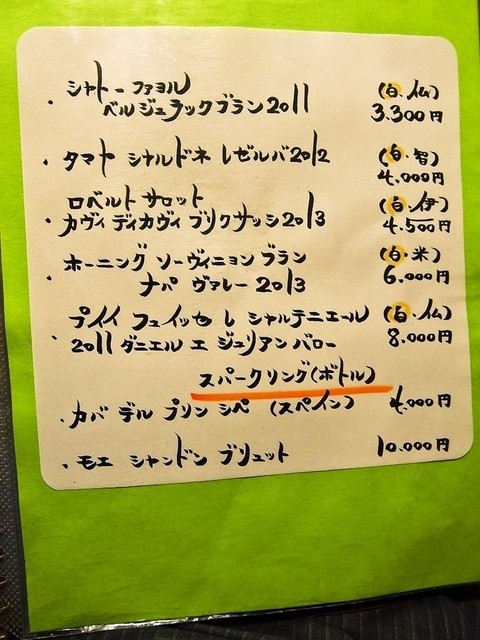 ・シャトーファヨル (白・仏)
ベルジュラックブラン2011 3.300円
・タマヤ シャルドネ レゼルバ2012 (白・智)
4.000円
ロベルト サロット (白・伊)
・カヴィ ディカヴィ ブリクサッシ2013 4.500円
ホーニング ソーヴィニョン ブラン (白・米)
・ナパ ヴァレー 2013 6.000円
プイイ フュイッセ レ シャルテニエール (白・仏)
・2011 ダニエル エ ジュリアン バロー 8.000円
スパークリング(ボトル)
・カバ デル プリンシペ (スペイン) 4.000円
・モエ シャンドン ブリュット 10.000円